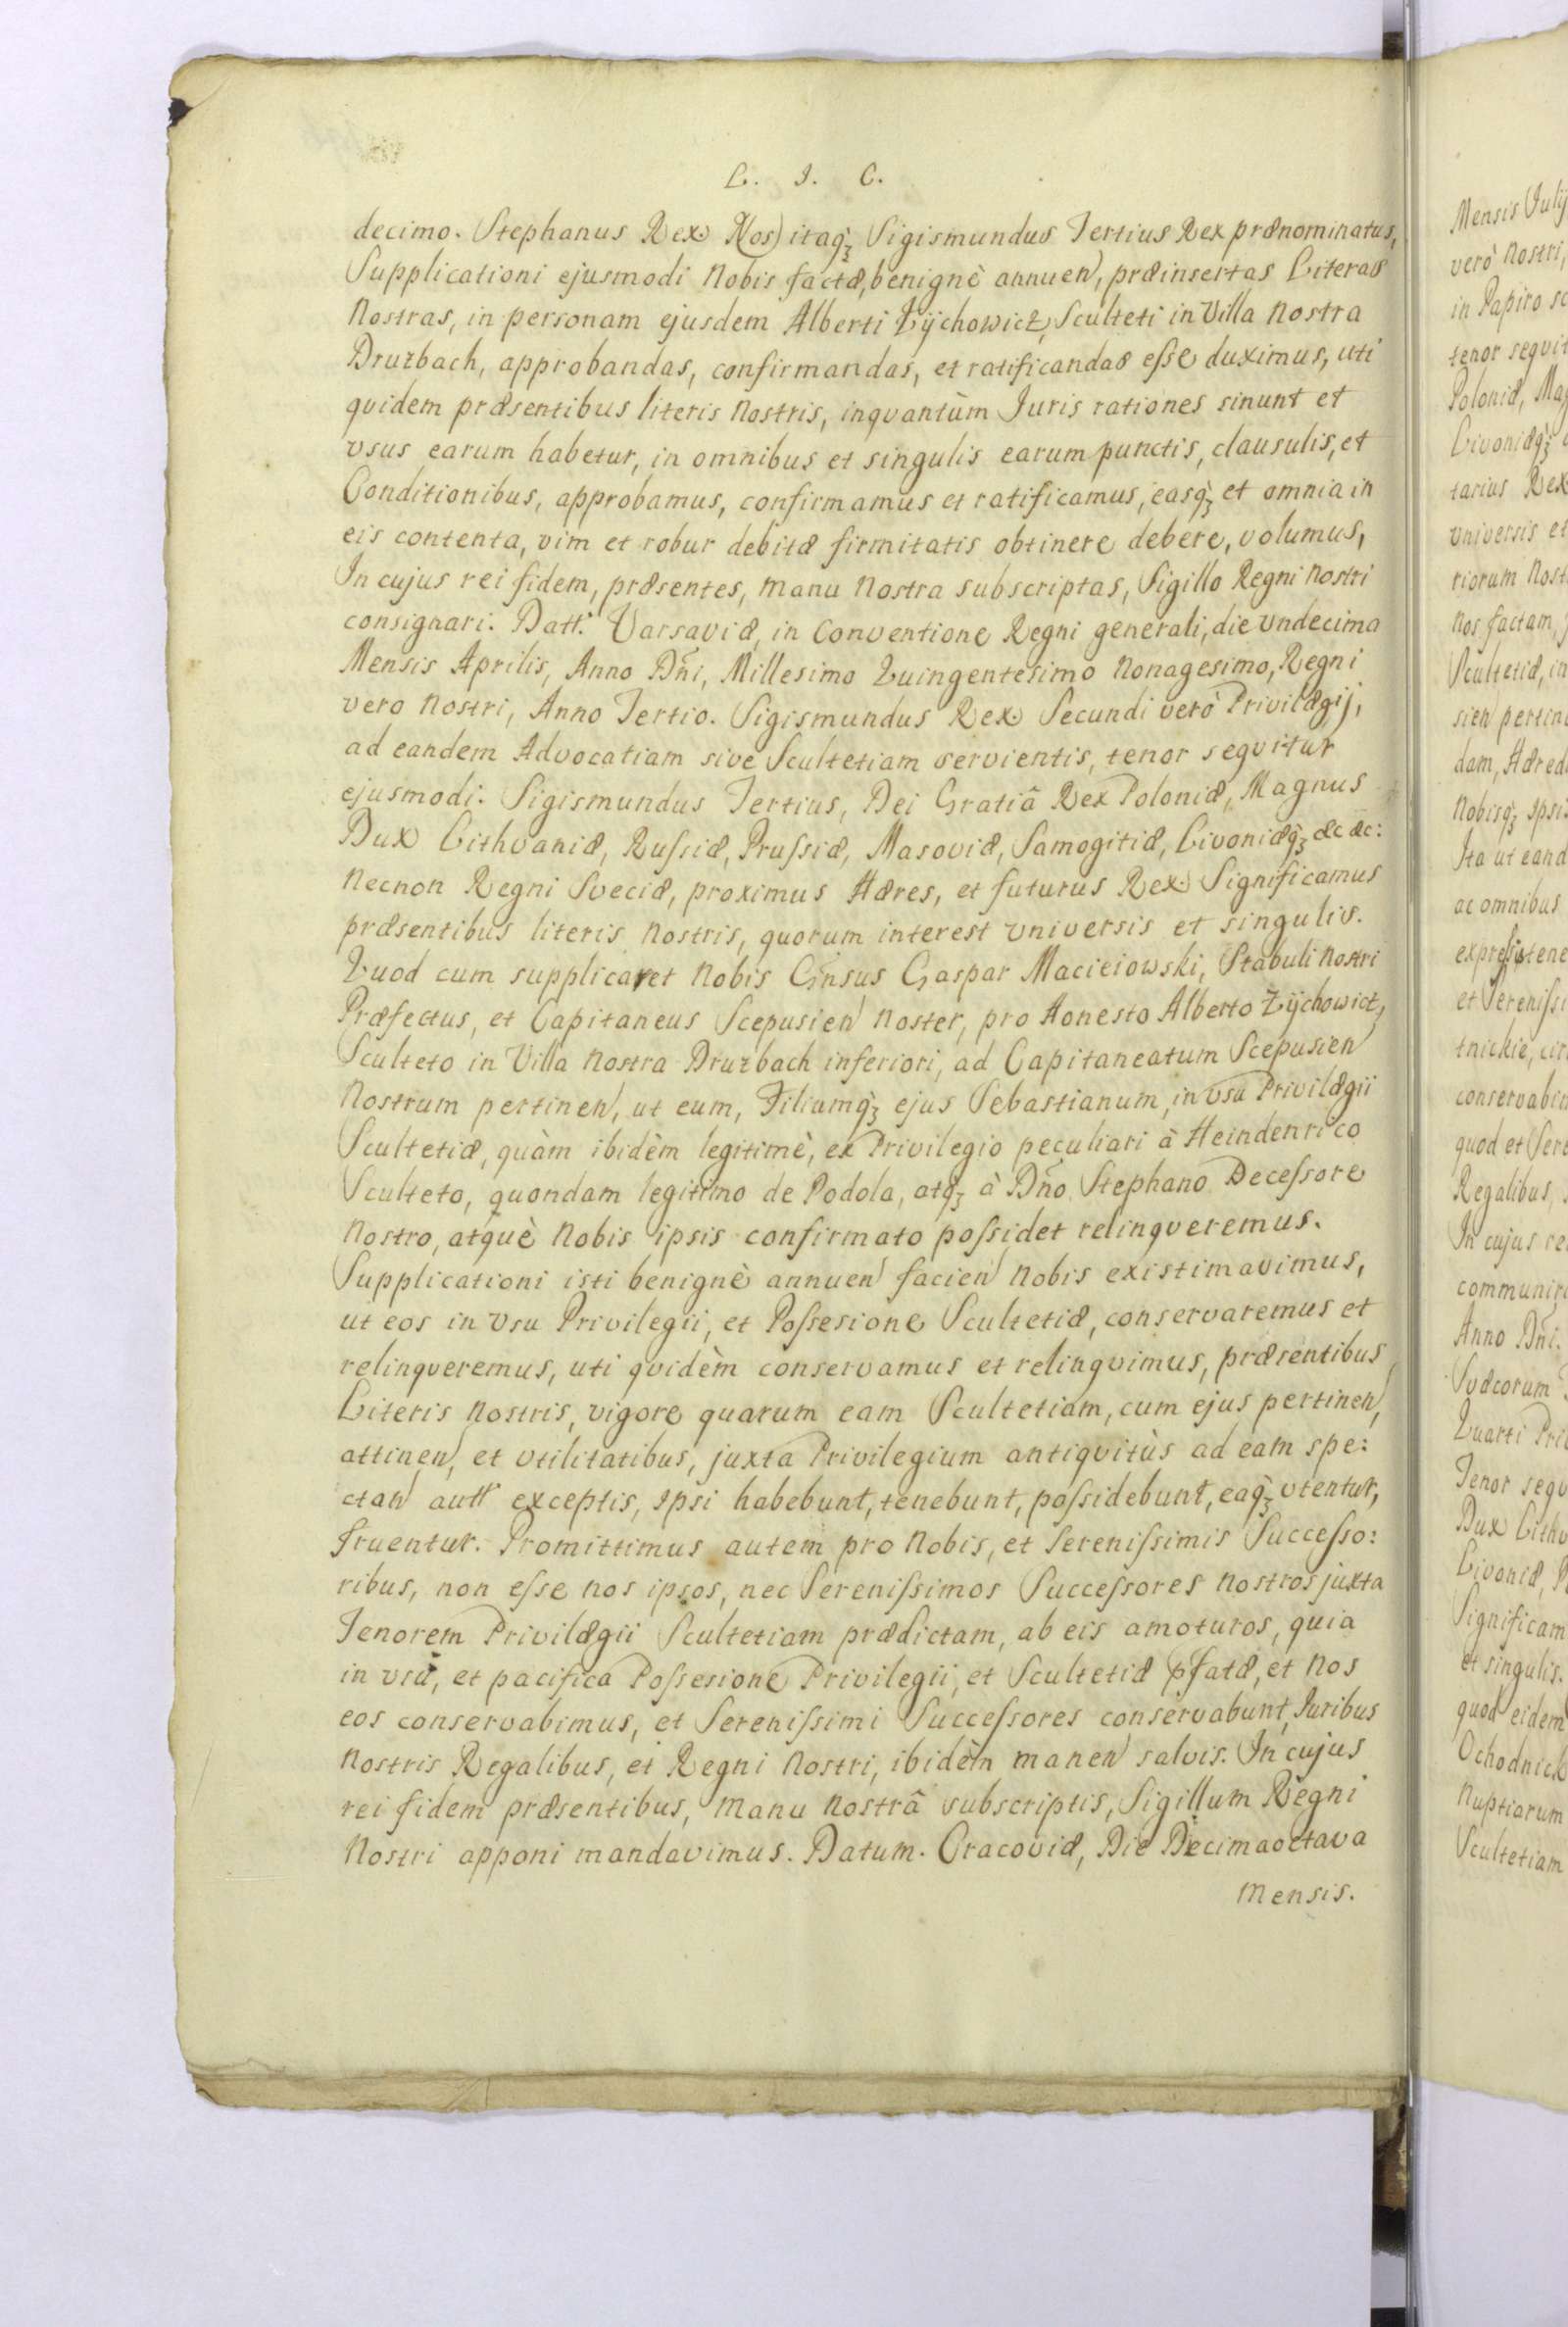 L. J. C.
decimo. Stephanus Rex. N(os) itaq₃ Sigismundus Tertius Rex prænominatus,
Supplicationi ejusmodi Nobis factæ, benignè annuen, præinsertas Literas
Nostras, in personam ejusdem Alberti Żychowicz, Sculteti in Villa nostra
Druzbach, approbandas, confirmandas, et ratificandas eſse duximus, uti
qvidem præsentibus literis Nostris, inqvantùm Juris rationes sinunt et
vsus earum habetur, in omnibus et singulis earum punctis, clausulis, et
Conditionibus, approbamus, confirmamus et ratificamus, easq₃ et omnia in
eis contenta, vim et robur debitæ firmitatis obtinere debere, volumus,
In cujus rei fidem, præsentes, manu Nostra subscriptas, Sigillo Regni Nostri
consignari. Datt. Varsaviæ, in Conventione Regni generali, die vndecima
Mensis Aprilis, Anno Dñi, Millesimo Quingentesimo Nonagesimo, Regni
vero Nostri, Anno Tertio. Sigismundus Rex. Secundi verò Privilægij,
ad eandem Advocatiam sive Scultetiam servientis, tenor seqvitur
ejusmodi. Sigismundus Tertius, Dei Gratiâ Rex Poloniæ, Magnus
Dux Lithvaniæ, Ruſsiæ, Pruſsiæ, Masoviæ, Samogitiæ, Livoniæq₃ &c &c:
Necnon Regni Sveciæ, proximus Hæres, et futurus Rex. Significamus
præsentibus literis Nostris, quorum interest vniversis et singulis.
Quod cum supplicaret Nobis Gñsus Gaspar Macieiowski, Stabuli Nostri
Præfectus, et Capitaneus Scepusien Noster, pro Honesto Alberto Żychowicz,
Sculteto in Villa Nostra Druzbach inferiori, ad Capitaneatum Scepusien
Nostrum pertinen, ut eum, Filiumq₃ ejus Sebastianum, in vsu Privilægii
Scultetiæ, quàm ibidèm legitimè, ex Privilegio peculiari à Heindenrico
Sculteto, quondam legitimo de Podola, atq₃ à Dño Stephano Deceſsore
Nostro, atquè Nobis ipsis confirmato poſsidet relinqveremus.
Supplicationi isti benignè annuen facien Nobis existimavimus,
ut eos in vsu Privilegii, et Poſsesione Scultetiæ, conservaremus et
relinqveremus, uti qvidèm conservamus et relinqvimus, præsentibus
Literis Nostris, vigore quarum eam Scultetiam, cum ejus pertinen,
attinen, et vtilitatibus, juxta Privilegium antiqvitùs ad eam spe:
ctan autt exceptis, Ipsi habebunt, tenebunt, poſsidebunt, eaq₃ vtentur,
fruentur. Promittimus autem pro Nobis, et Sereniſsimis Succeſso:
ribus, non eſse nos ipsos, nec Sereniſsimos Succeſsores Nostros juxta
Tenorem Privilægii Scultetiam prædictam, ab eis amoturos, quia
in vsu, et pacifica Poſsesione Privilegii, et Scultetiæ pfatæ, et Nos
eos conservabimus, et Sereniſsimi Succeſsores conservabunt, Juribus
Nostris Regalibus, et Regni Nostri, ibidèm manen salvis. In cujus
rei fidem præsentibus, manu Nostrâ subscriptis, Sigillum Regni
Nostri apponi mandavimus. Datum. Cracoviæ, Die Decimaoctava
Mensis.
Mensis Julij
verò Nostri,
in Papiro
tenor
Poloniæ,
Livoniæq₃
tarius Rex
vniversis et
riorum
Nos factam,
Scultetiæ, in
sien
dam,
Nobisq₃
Ita ut
ac omnibus
et
tnickie,
quod et
Regalibus,
In cujus
Anno Dñi.
Svæcorum
Quarti
Tenor
Dux
Livoniæ,
Significam
et singulis.
quod eidem
Nuptiarum
Scultetiam